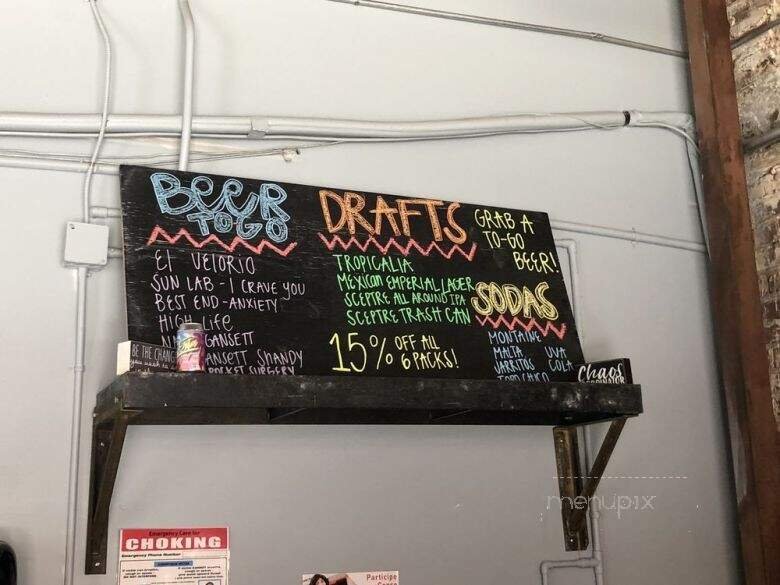 BEER
TO GO
El VELORIO
SUN LAB - I CRAVE YOU
BEST END - ANXIETY
HIGH Life
GANSETT
ANSETT SHANDY
ROCKET SURGERY
DRAFTS
TROPICALIA
MEXICAN EMPERIAL LAGER
SCEPTRE ALL AROUND IPA
SCEPTRE TRASH CAN
15% OFF ALL
6 PACKS!
GRAB A
TO-GO
BEER!
SODAS
MONTAINE
MALTA UVA
JARRITOS COLA
TOPO CHICO
BE THE CHANGE
Chaos
COORDINATOR
menupix
Emergency Care for
CHOKING
Emergency Phone Number
Participe